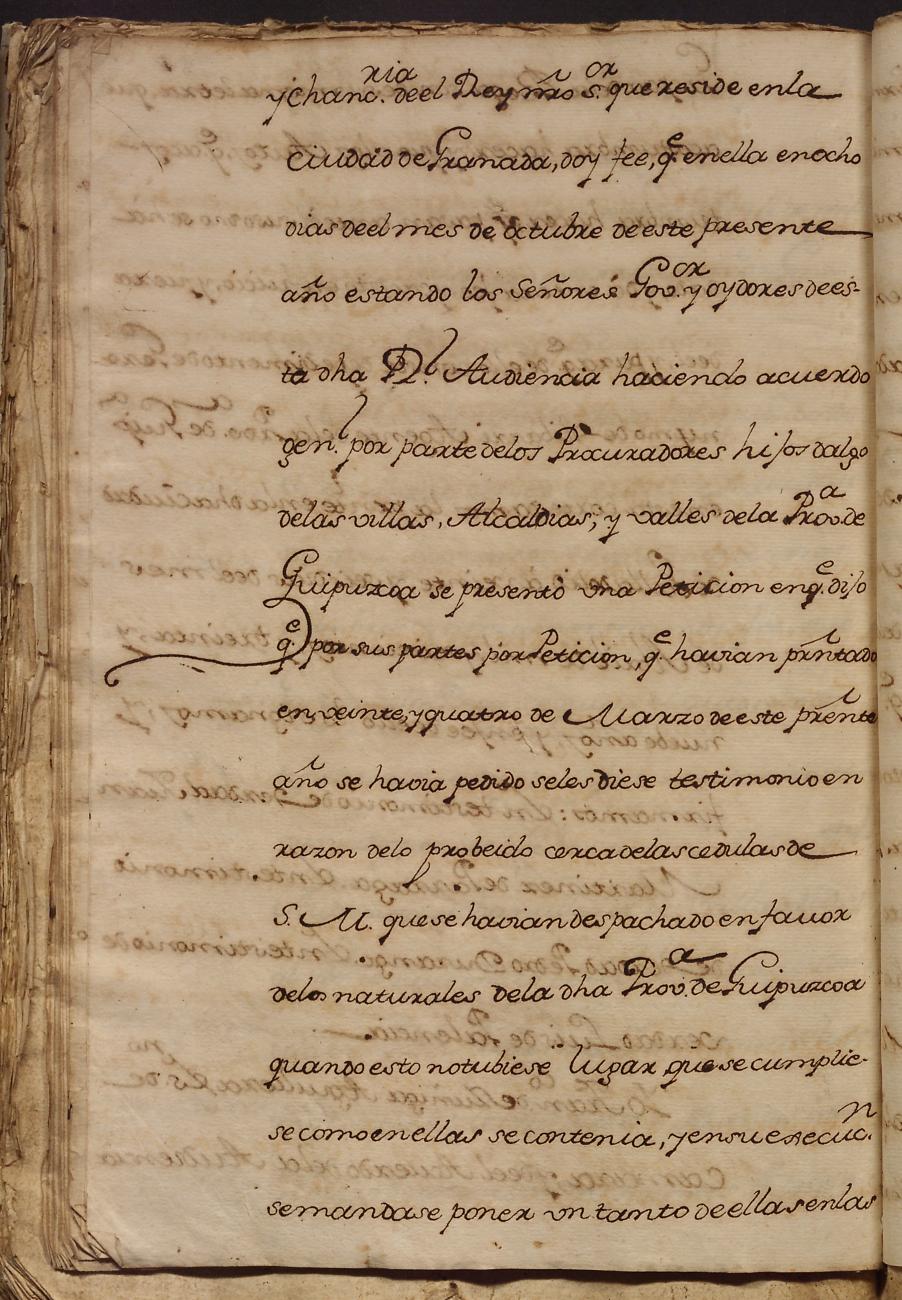 y Chanc.ria de el Rey nr̃o S.or que reside en la
Ciudad de Granada, doy fee, q.e en ella en ocho
dias de el mes de Octubre de este presente
año estando los Señores Gov.or y oydores de es-
ta dha R.l Audiencia haciendo acuerdo
gen.l por parte de los Procuradores hijos dalgo
de las villas, Alcaldias, y valles de la Prov.a de
Guipuzcoa se presentò vna Peticion en q.e dijo
q.e por sus partes por Peticion, q.e havian prñtado
en veinte, y quatro de Marzo de este prẽnte
año se havia pedido se les diese testimonio en
razon de lo probeido cerca de las cedulas de
S. M. que se havian despachado en favor
de los naturales de la dha Prov.a de Guipuzcoa
quando esto no tubiese lugar que se cumplie-
se como en ellas se contenia, y en su execuc.n
se mandase poner vn tanto de ellas en las